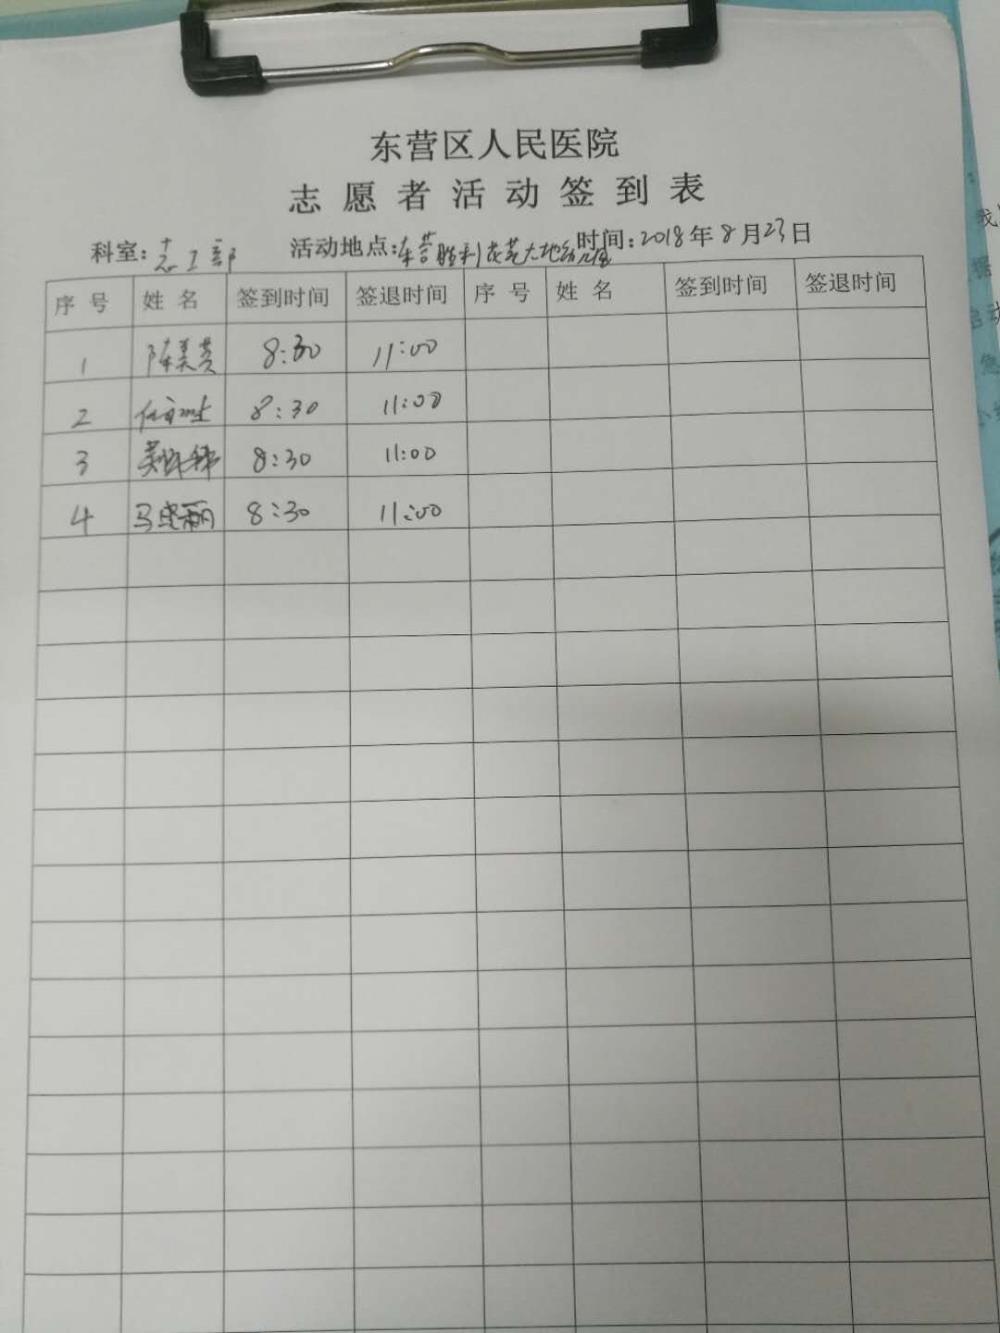 东营区人民医院
志愿者活动签到表
科室: 志工部 活动地点: 东营胜利 大地 时间: 2018年8月23日
序号 姓名 签到时间 签退时间 序号 姓名 签到时间 签退时间
1 陈美英 8:30 11:00
2 8:30 11:00
3 8:30 11:00
4 马晓丽 8:30 11:00